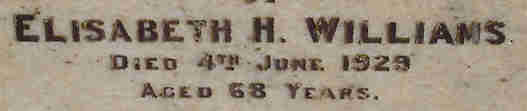 ELISABETH H. WILLIAMS
DIED 4TH JUNE 1929
AGED 68 YEARS.